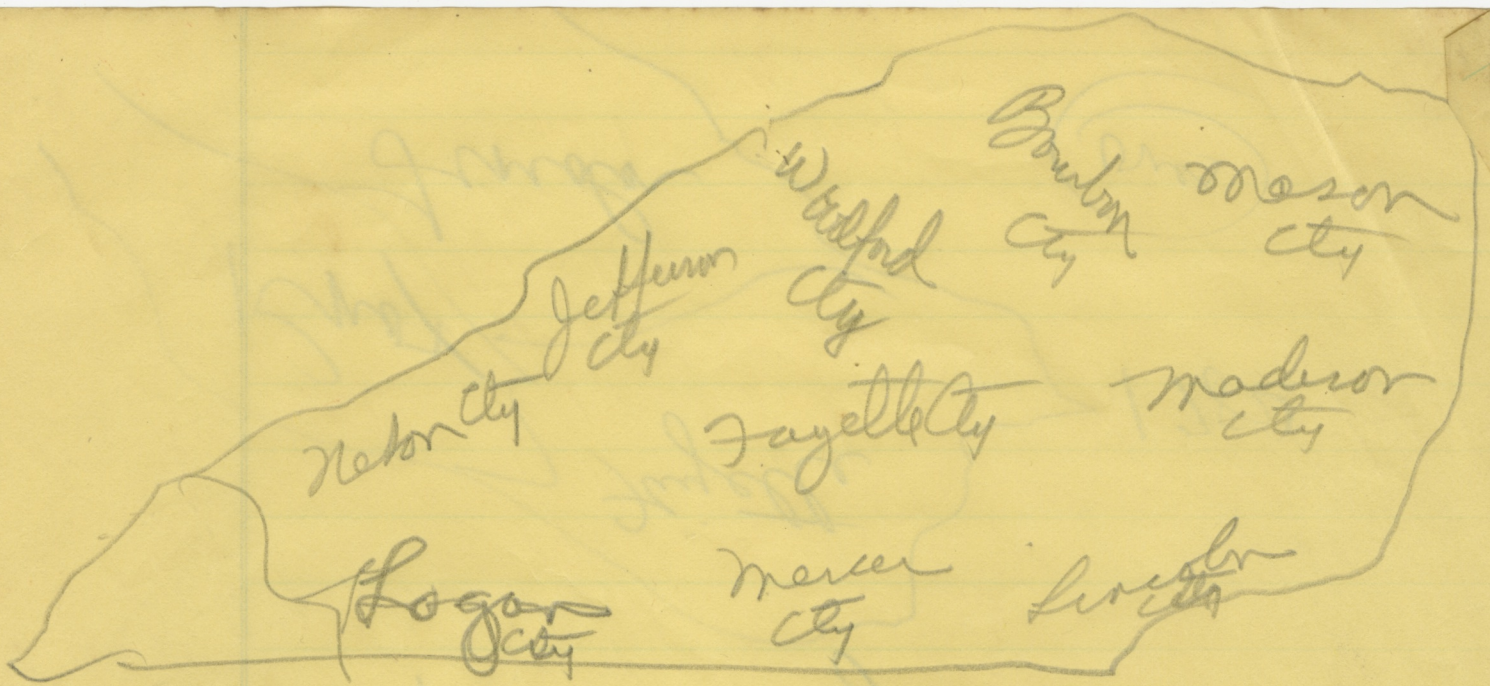 Bourbon
Cty
Mason
Cty
Woodford
Cty
Jefferson
Cty
Nelson Cty
Fayette Cty
Madison
Cty
Logan
Cty
Mercer
Cty
Lincoln
Cty